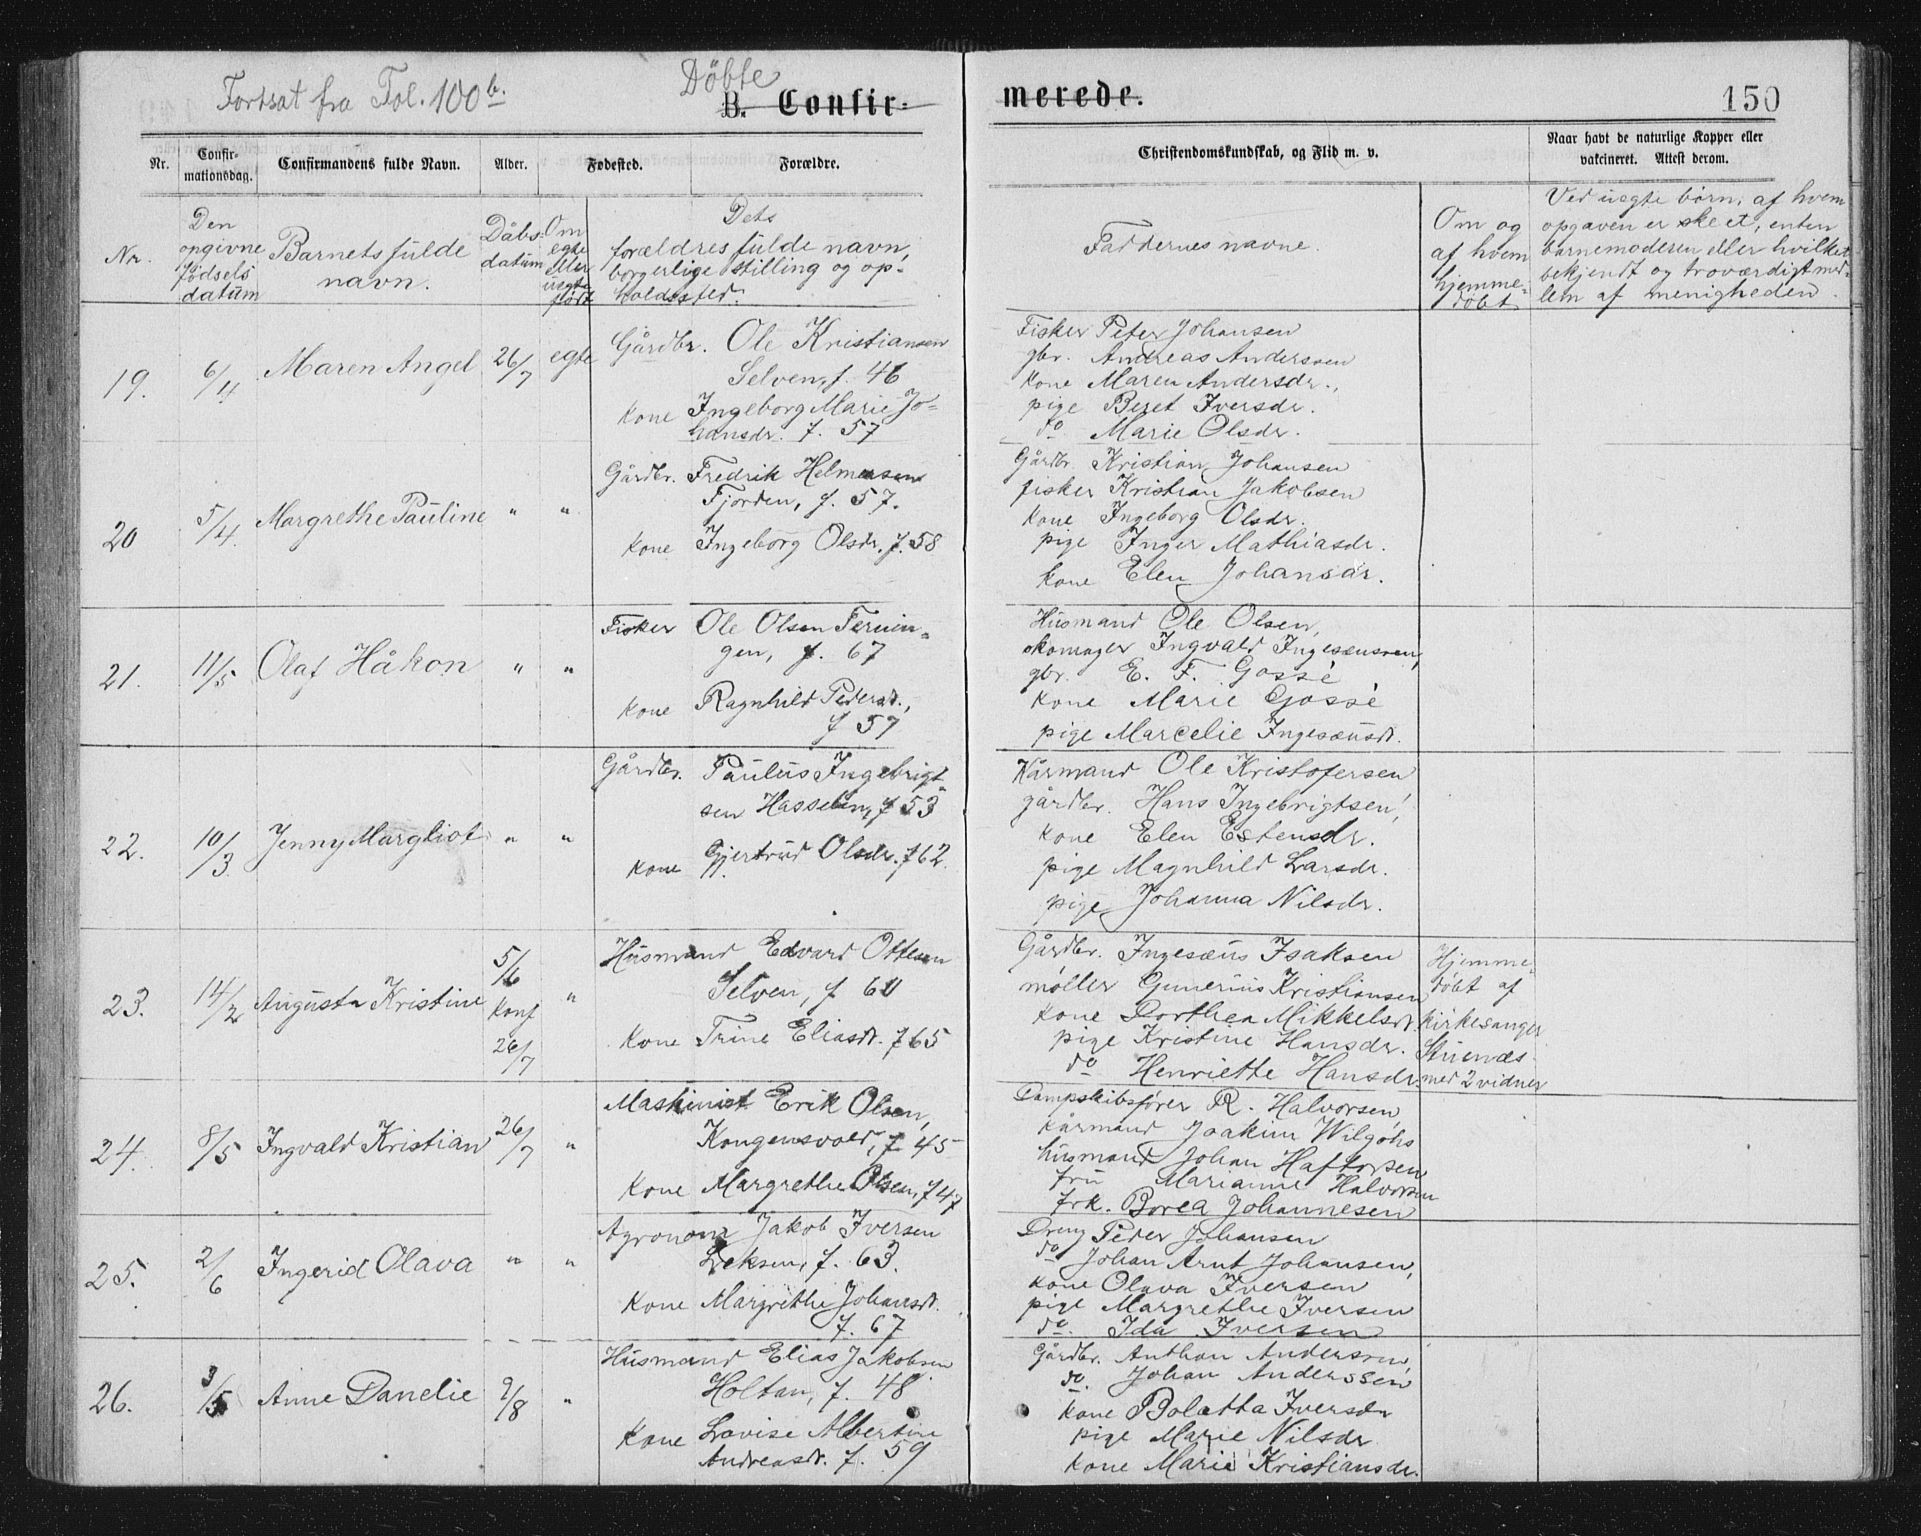 Fortsat fra Fol. 100 b.
Döbte
B. Confirmerede.
150
Nr.
Confirmationsdag.
Confirmandens fulde Navn.
Alder.
Fødested.
Forældre.
Christendomskundskab, og Flid m. v.
Naar havt de naturlige Kopper eller
vakcineret. Attest derom.
Nr.
Den
opgivne
fødsels
datum
Barnets fulde
navn.
Dåbs-
datum
Om
egte
eller
uegte
født
Dets
forældres fulde navn,
borgerlige stilling og op-
holdssted.
Faddernes navne.
Om og
af hvem
hjemme-
døbt
Ved uegte børn, af hvem
opgaven er skeet, enten
barnemoderen eller hvilket
bekjendt og troværdigt med-
lem af menigheden.
19. 6/4 Maren Angel 26/7 egte
Gårdbr. Ole Kristiansen
Selven, f. 46
kone Ingeborg Marie Jo-
hansdr. f. 57
Fisker Peter Johansen
gbr. Andreas Anderssen
kone Maren Andersdr.,
pige Beret Iversdr.
do Marie Olsdr.
20 5/4. Margrethe Pauline " "
Gårdbr. Fredrik Helmersen
Fjorden, f. 57.
kone Ingeborg Olsdr. f. 58
Gårdbr. Kristian Johansen
fisker Kristian Jakobsen
kone Ingeborg Olsdr.
pige Inger Mathiasdr.
kone Elen Johansdr.
21. 11/5 Olaf Håkon " "
Fisker Ole Olsen Ternin-
gen, f. 67
kone Ragnhild Pedersdt.,
f 57
Husmand Ole Olsen,
skomager Ingvald Ingesæussen,
gbr. E. F. Gossé
kone Marie Gossé
pige Marcelie Ingesæusdt.
22. 10/3 Jenny Margliot " "
Gårdbr. Paulus Ingebrigt-
sen Hasselen, f 53
kone Gjertrud Olsdr. f 62.
Kårmand Ole Kristofersen
gårdbr. Hans Ingebrigtsen,
kone Elen Estensdr.
pige Magnhild Larsdr.
pige Johanna Nilsdr.
23. 14/2 Augusta Kristine 5/6 konf 26/7 "
Husmand Edvard Ottesen
Selven, f 60
kone Trine Eliasdt. f 65
Gårdbr. Ingesæus Isaksen
møller Gunerius Kristiansen
kone Dorthea Mikkelsdt.
pige Kristine Hansdr.
do Henriette Hansdr.
Hjemme-
døbt af
kirkesanger
Stuenæs
med 2 vidner
24. 8/5 Ingvald Kristian 26/7 "
Maskinist Erik Olsen,
Kongensvold, f 45
kone Margrethe Olsen, f 47
Dampskibsfører R. Halvorsen,
kårmand Joakim Wilgohs
husmand Johan Haftorsen
fru Marianne Halvorsen
frk. Borea Johannesen
25. 2/6 Ingerid Olava " "
Agronom Jakob Iversen
Leksen, f. 63.
kone Margrethe Johansdt.
f. 67
Dreng Peder Johansen
do Johan Arnt Johansen,
kone Olava Iversen
pige Margrethe Iversen
do. Ida Iversen
26. 3/5 Anne Danelie 9/8 "
Husmand Elias Jakobsen
Holtan, f. 48
kone Lovise Albertine
Andreasdt. f. 59
Gårdbr. Anthon Anderssen,
do. Johan Anderssen
kone Boletta Iversdr
pige Marie Nilsdr
kone Marie Kristiansdr.